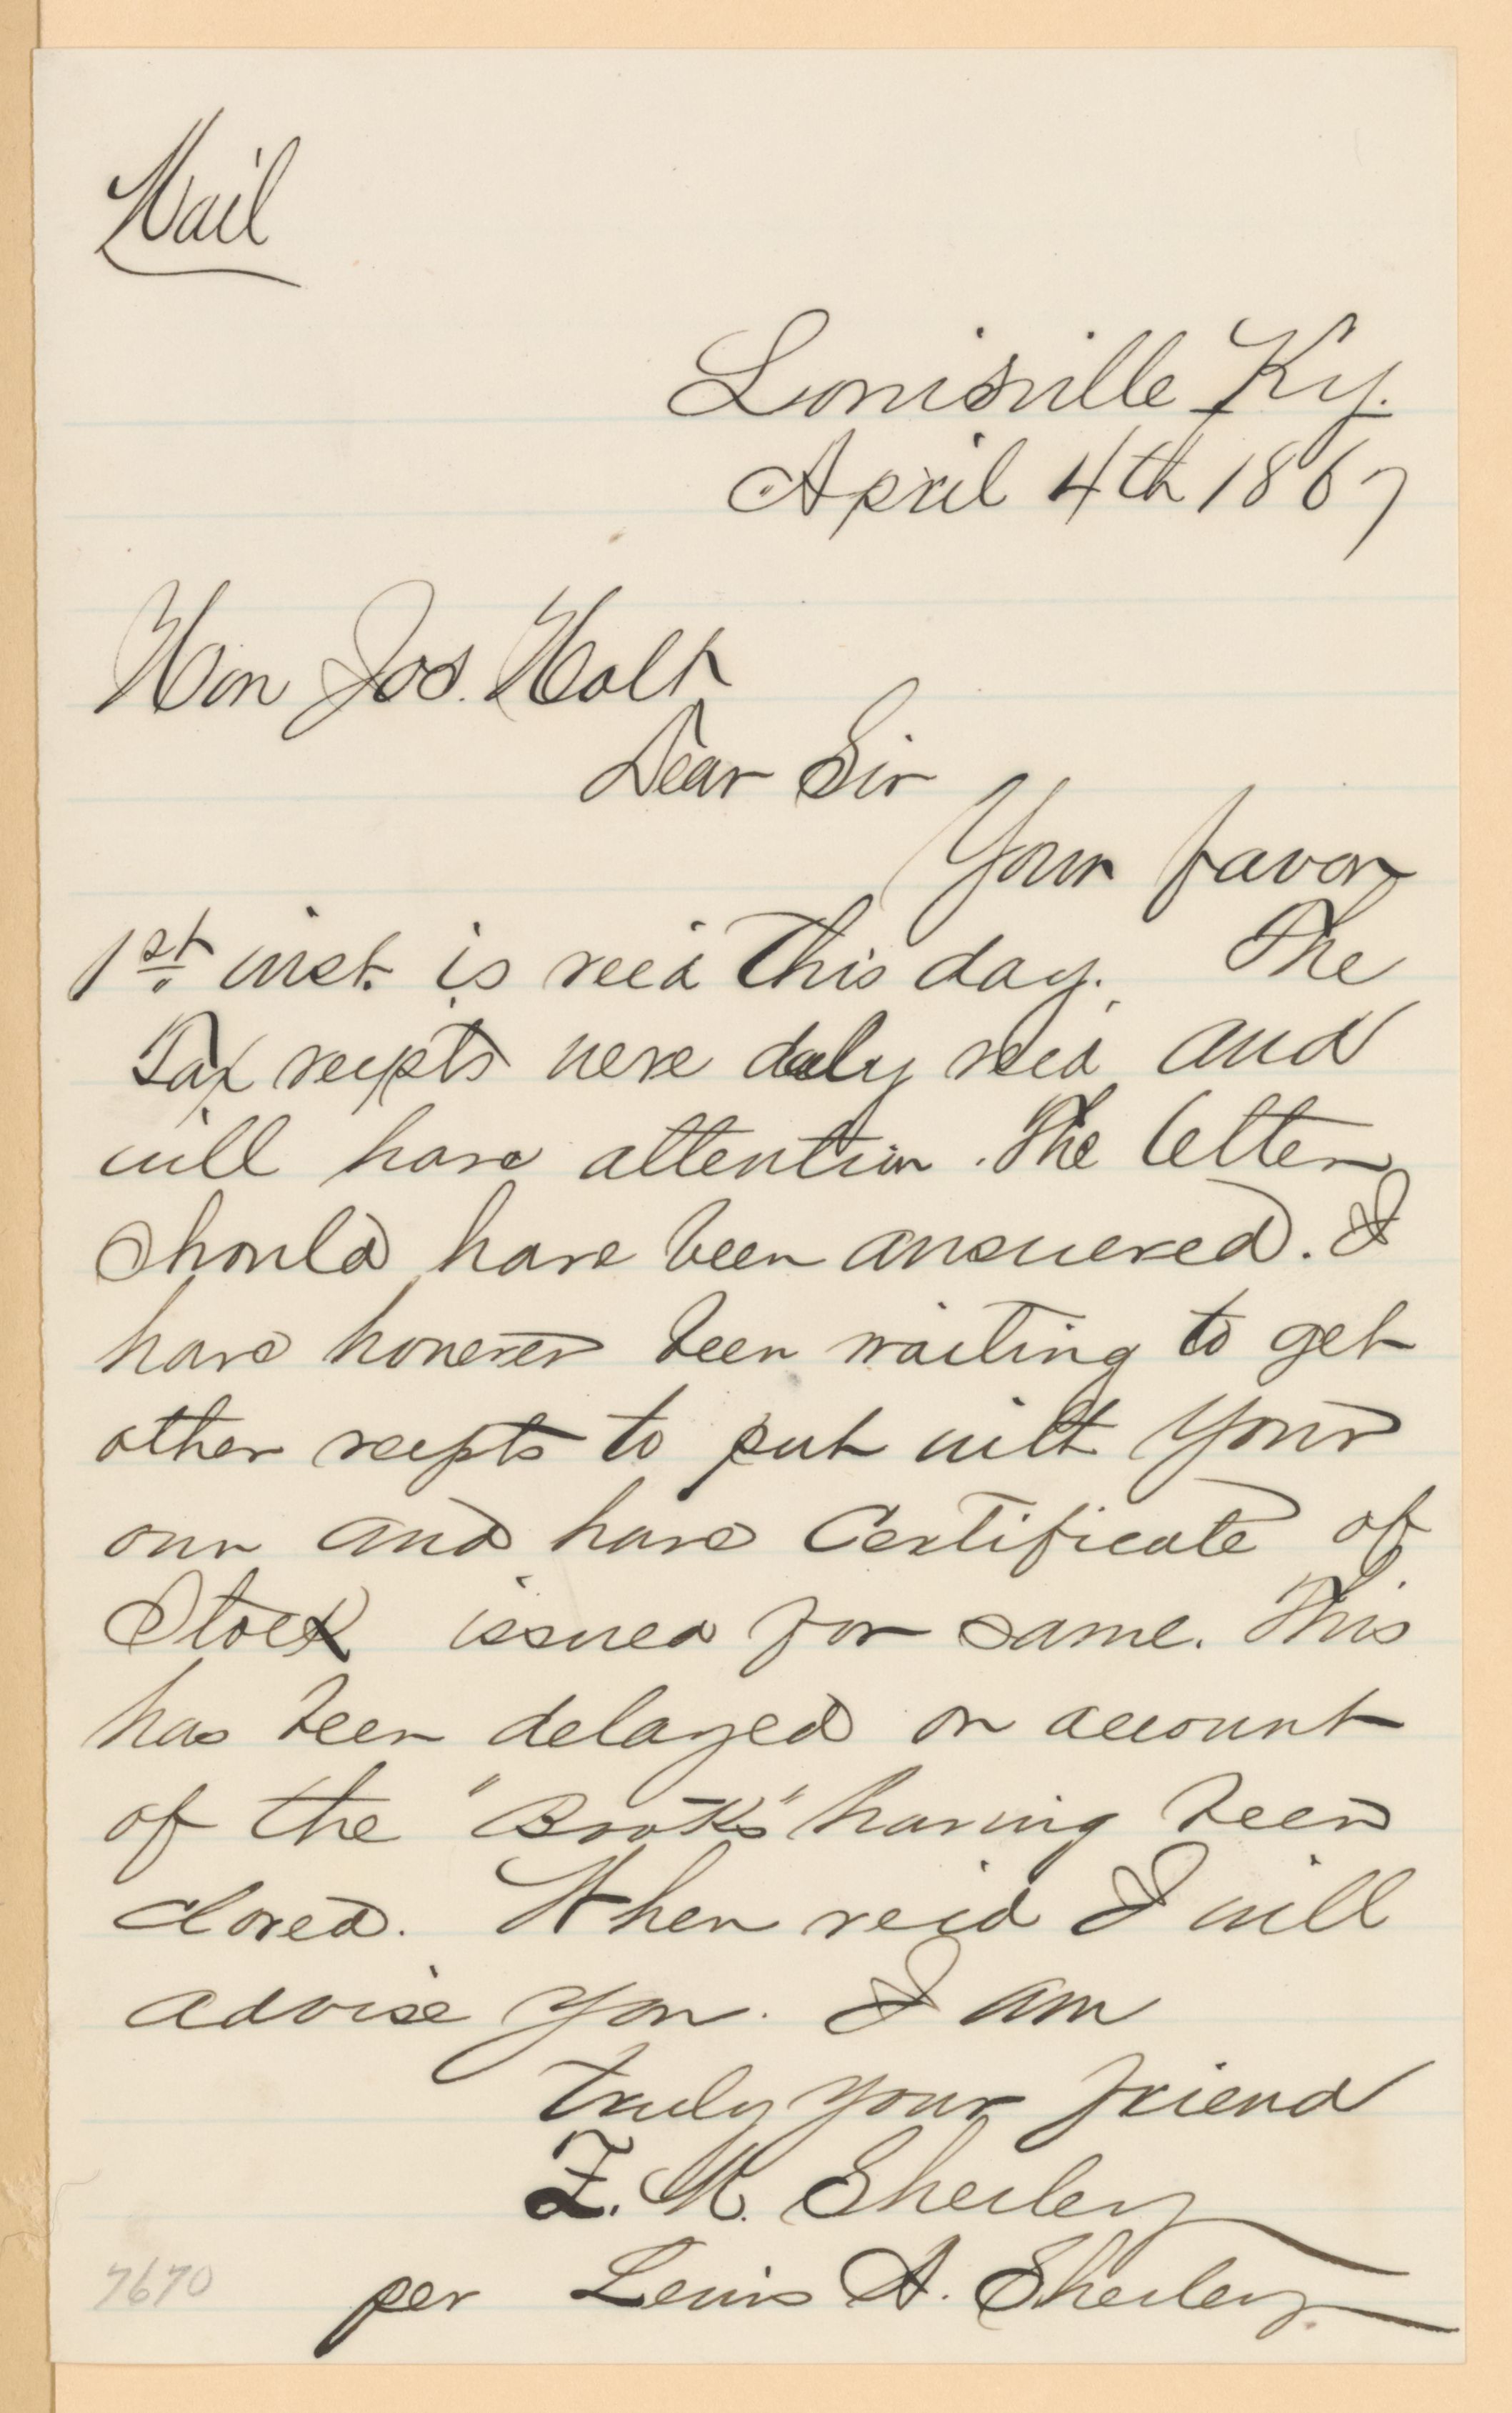 Mail
Louisville Ky.
April 4th 1867
Hon Jos. Holt
Dear Sir
Your favor
1st inst. is recd this day. The
Tax recpts were duly recd and
will have attention. The letter
should have been answered. I
have however been waiting to get
other recpts to put with your
own and have Certificate of
Stock issued for same. This
has been delayed on account
of the "Books" having been
closed. When recd I will
advise you. I am
truly your friend
Z. M. Sherley
per Lewis A. Sherley
7670